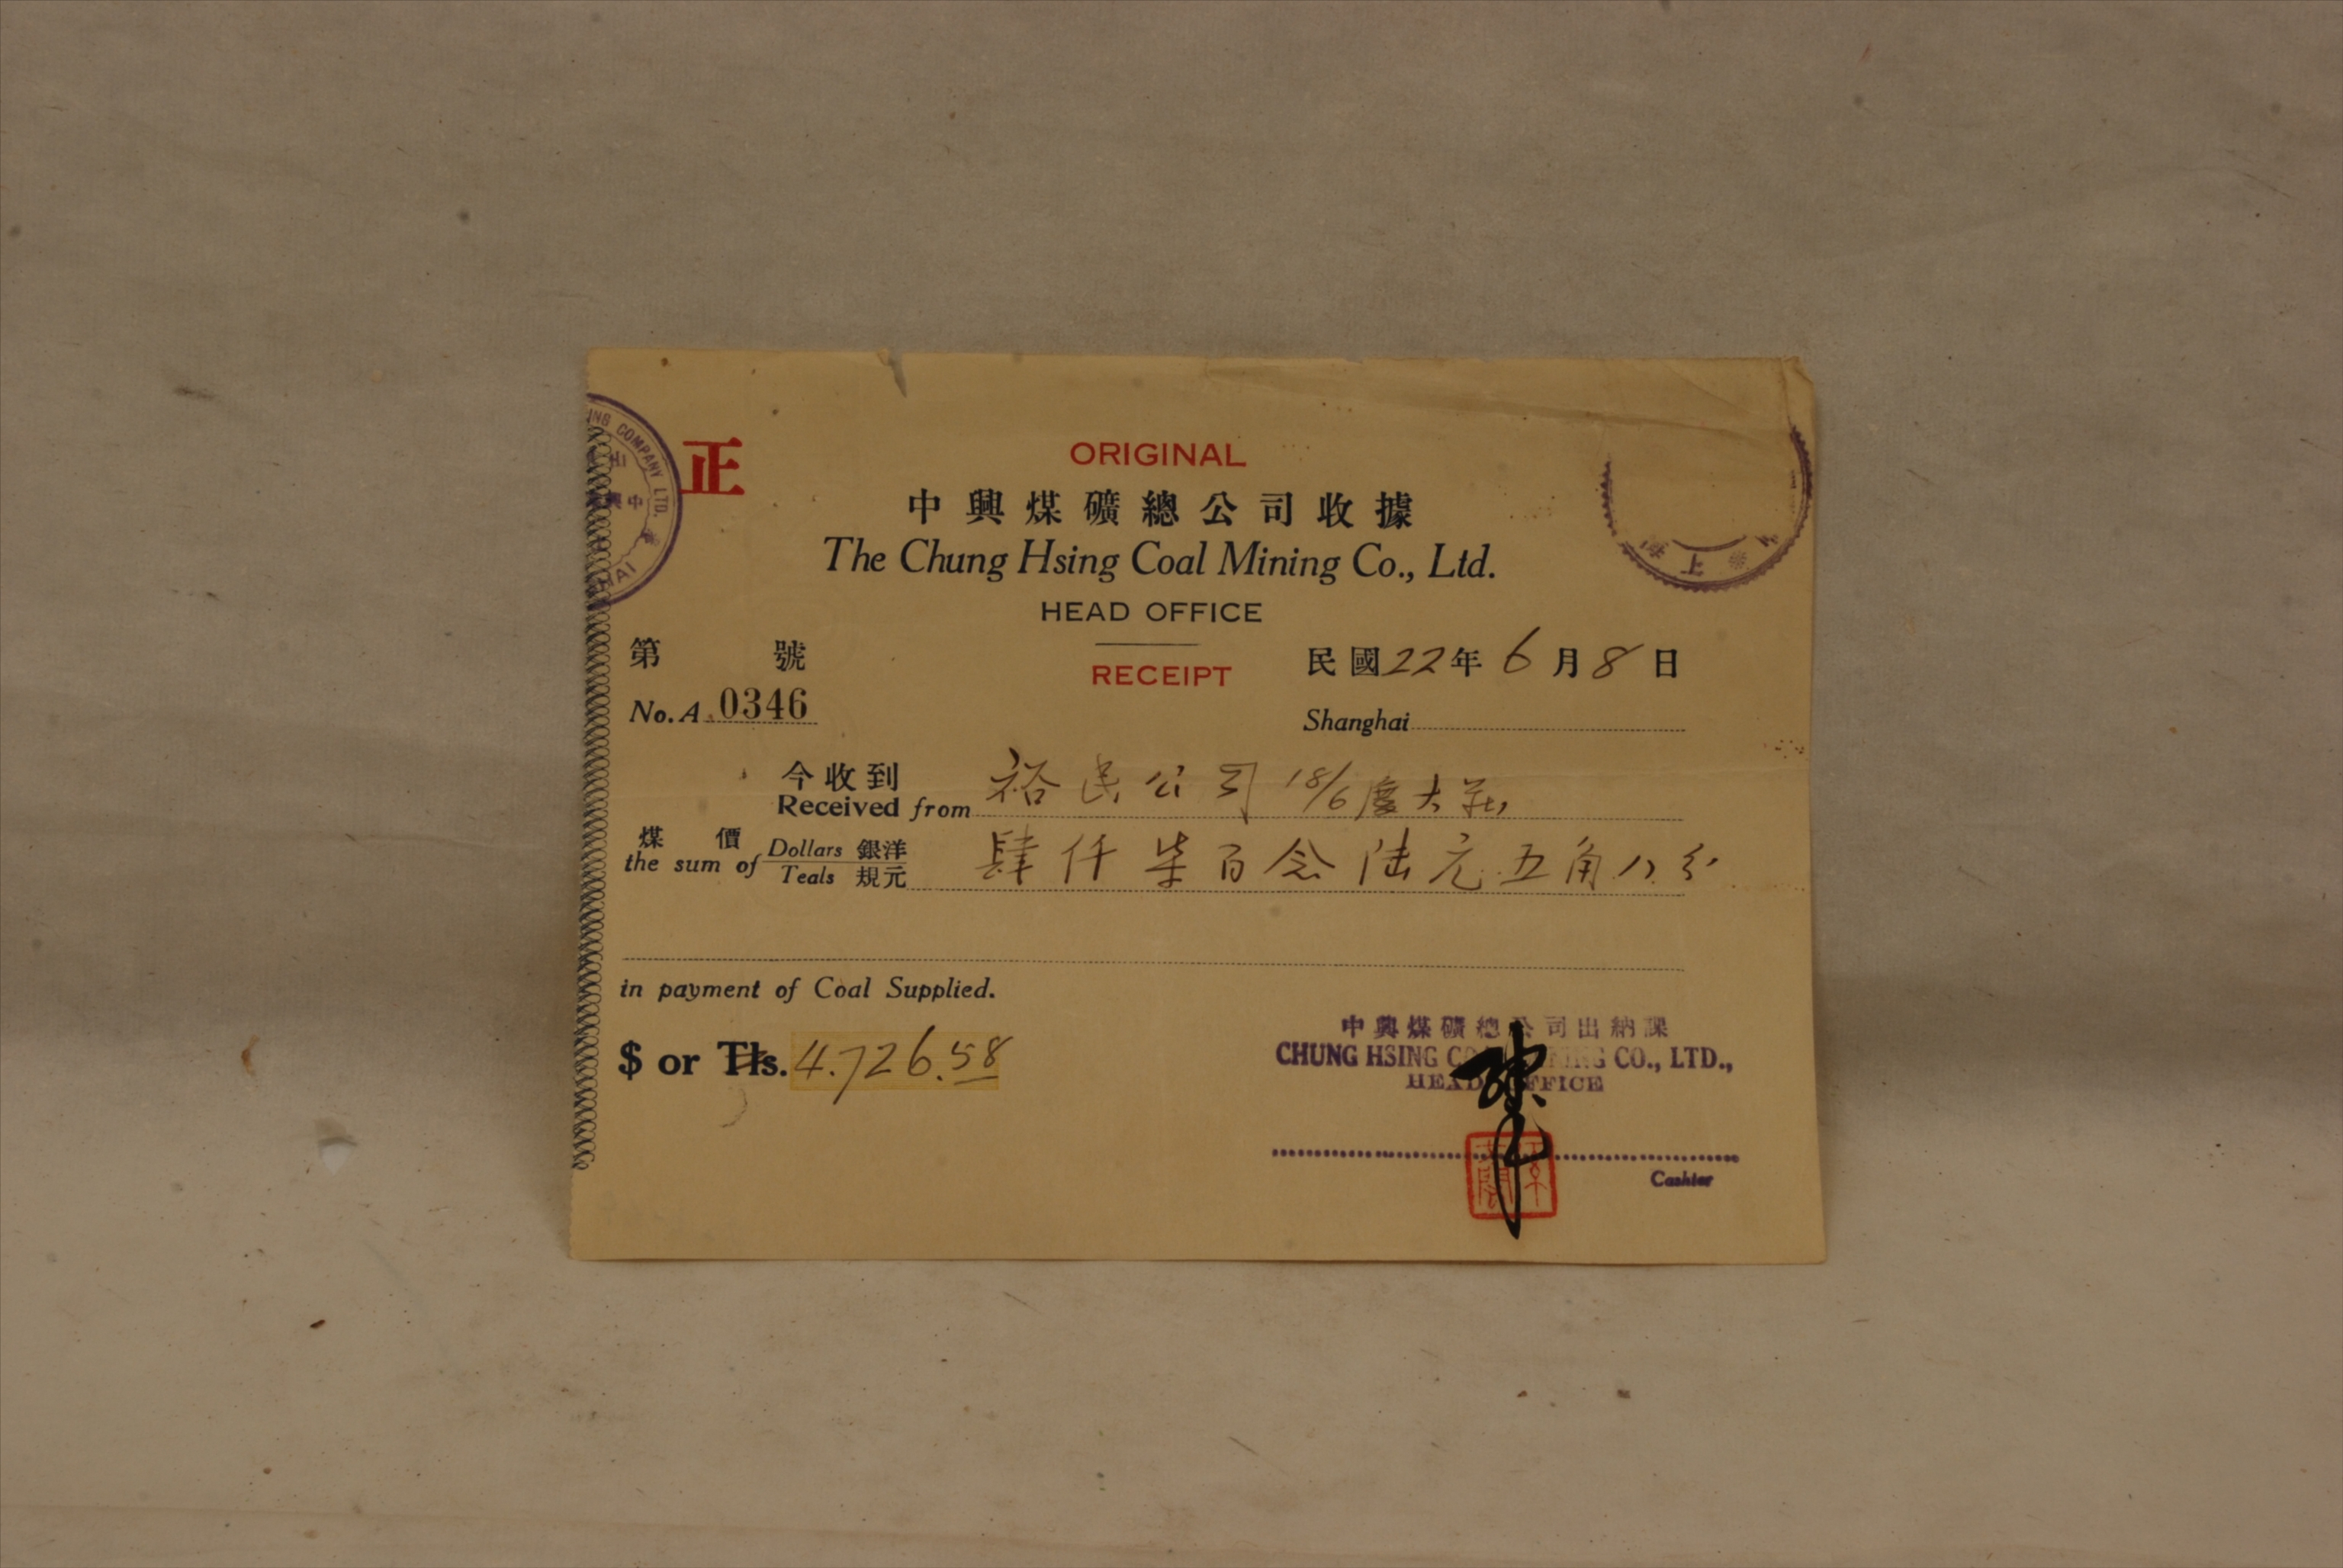 ING COMPANY LTD.
中興
HAI
正
ORIGINAL
中興煤礦總公司收據
The Chung Hsing Coal Mining Co., Ltd.
HEAD OFFICE
第 號
No. A 0346
RECEIPT
民國22年6月8日
Shanghai
上海
今收到
Received from 裕民公司 18/6 慶大莊
煤價
the sum of Dollars 銀洋
Teals 規元
肆仟柒百念陸元五角八分
in payment of Coal Supplied.
$ or Tls. 4.726.58
中興煤礦總公司出納課
CHUNG HSING COAL MINING CO., LTD.,
HEAD OFFICE
Cashier